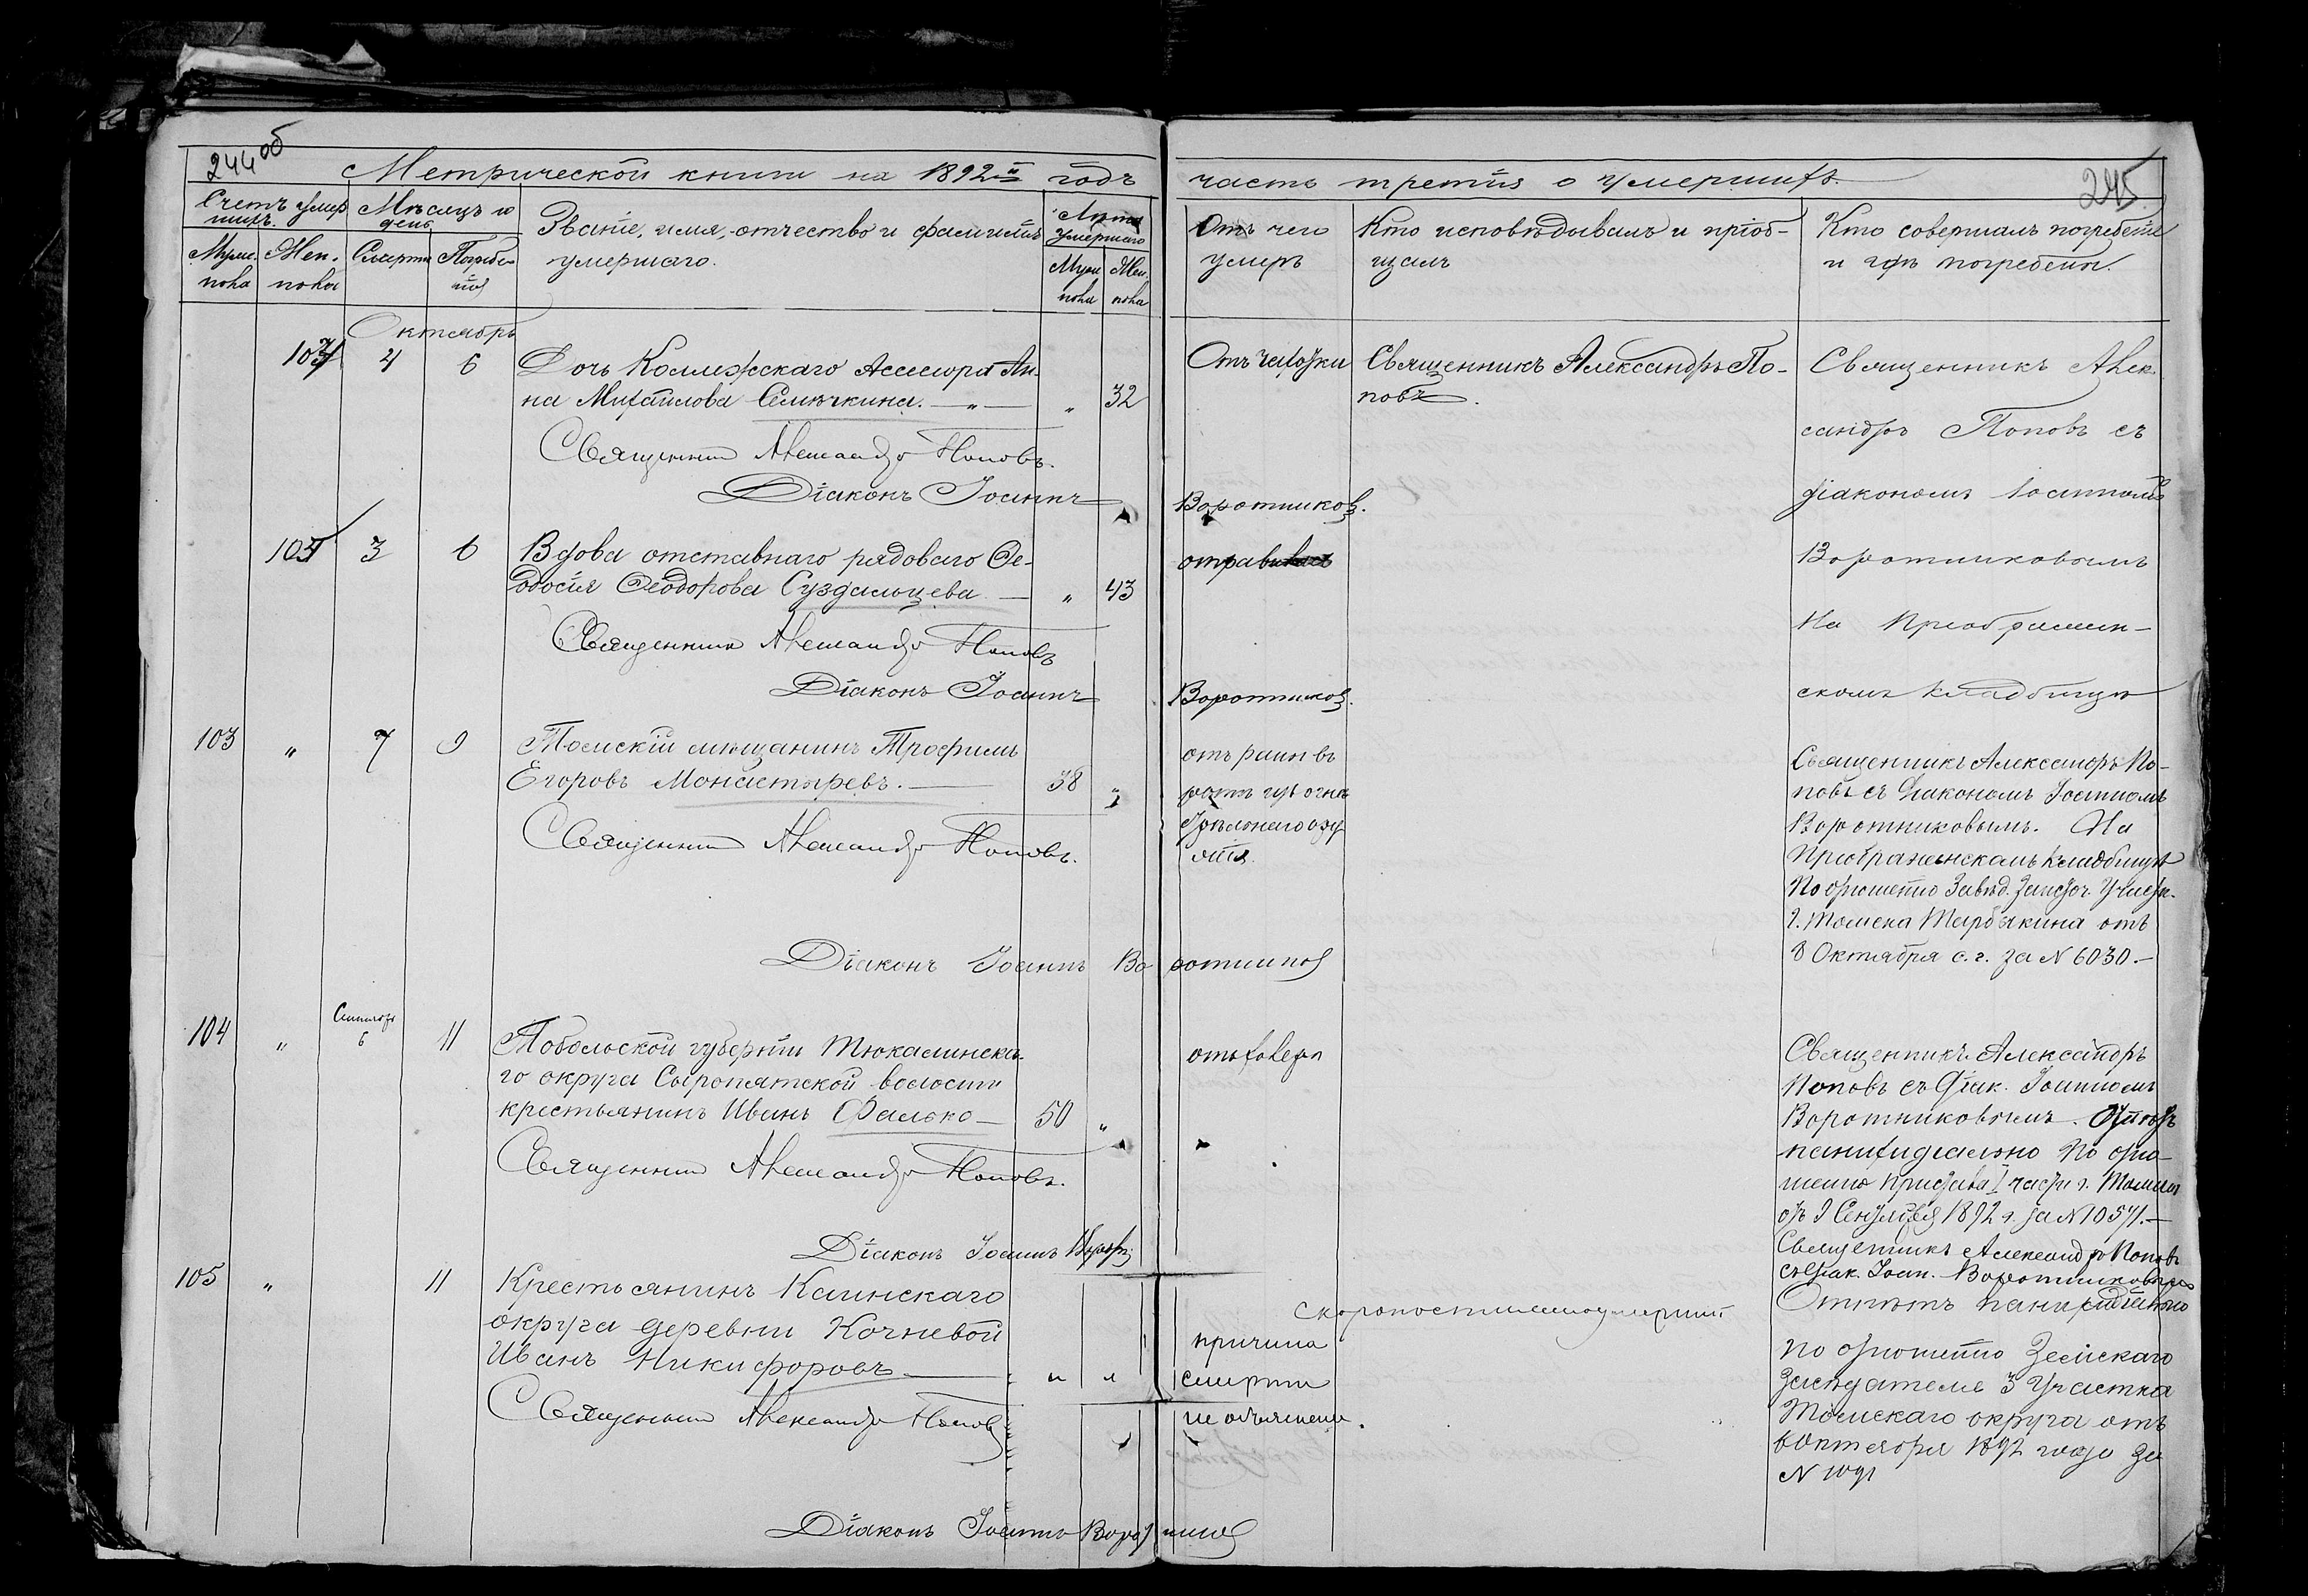 244 об
Метрической книги на 1892й годъ
Счетъ умер
шихъ.
Мѣсяцъ и
день
Званіе, имя, отчество и фамилія
умершаго.
Лѣта
умершаго
Муж.
пола
Жен.
пола
Смерти
Погребе
нія
Муж
пола
Жен.
пола
Октябрь
4
6
Дочь Коллежскаго Ассесора Ан-
на Михаилова Семячкина. — „ —
„
32
Священникъ Александръ Поповъ.
Діаконъ Іоаннъ
3
6
Вдова отставнаго рядоваго Ѳе-
одосія Ѳеодорова Суздальцева —
„
43
Священникъ Александръ Поповъ
Діаконъ Іоаннъ
103
„
7
9
Томскій мѣщанинъ Трофимъ
Егоровъ Монастыревъ. —
38
„
Священникъ Александръ Поповъ.
Діаконъ Іоаннъ Во
104
„
6
11
Тобольской губерніи Тюкалинска-
го округа Сыропятской волости
крестьянинъ Иванъ Фалько —
50
„
Священникъ Александръ Поповъ.
Діаконъ Іоаннъ
105
„
11
Крестьянинъ Каинскаго
округа деревни Кочневой
Иванъ Никифоровъ —
„
„
Священникъ Александръ Попов
Діаконъ Іоаннъ
245
часть третія о умершихъ.
Отъ чего
умеръ
Кто исповѣдывалъ и пріоб-
щалъ
Кто совершалъ погребеніе
и гдѣ погребены.
Отъ чахотки
Священникъ Александръ По-
повъ.
Священникъ Алек-
сандръ Поповъ съ
діакономъ Іоанномъ
Воротниковымъ
На Преображен-
скомъ кладбищѣ
Воротников.
Воротников.
отъ ранъ въ
Священникъ Александръ По-
повъ съ діакономъ Іоанномъ
Воротниковымъ. На
Преображенскомъ кладбищѣ
По отношенію Завѣд. Заисточ. Участк.
г. Томска отъ
8 Октября с. г. за N 6030. —
ротников
отъ холеры
Священникъ Александръ
Поповъ съ діак. Іоанномъ
Воротниковымъ. Отпѣтъ
панихидально По отно-
шенію Пристава I части г. Томска
9 1892 г. за N 10571. —
Священникъ Александръ Поповъ
съ діак. Іоан. Воротниковымъ
Отпѣтъ панихидально
по отношенію Земскаго
Засѣдателя 3 Участка
Томскаго округа отъ
6 Октября 1892 года за
N 1091
скоропостижноумершій
причина
смерти
не объяснена.